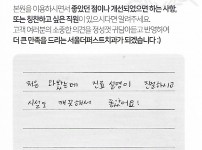 본원을 이용하시면서 좋았던 점이나 개선되었으면 하는 사항,
또는 칭찬하고 싶은 직원이 있으시다면 말려주세요.
고객 여러분의 소중한 의견을 정성껏 귀담아듣고 반영하여
더 큰 만족을 드리는 서울더퍼스트치과가 되겠습니다 :)
처음 와봤는데 진료 설명이 친절하시고
시설이 깨끗해서 좋았어요!